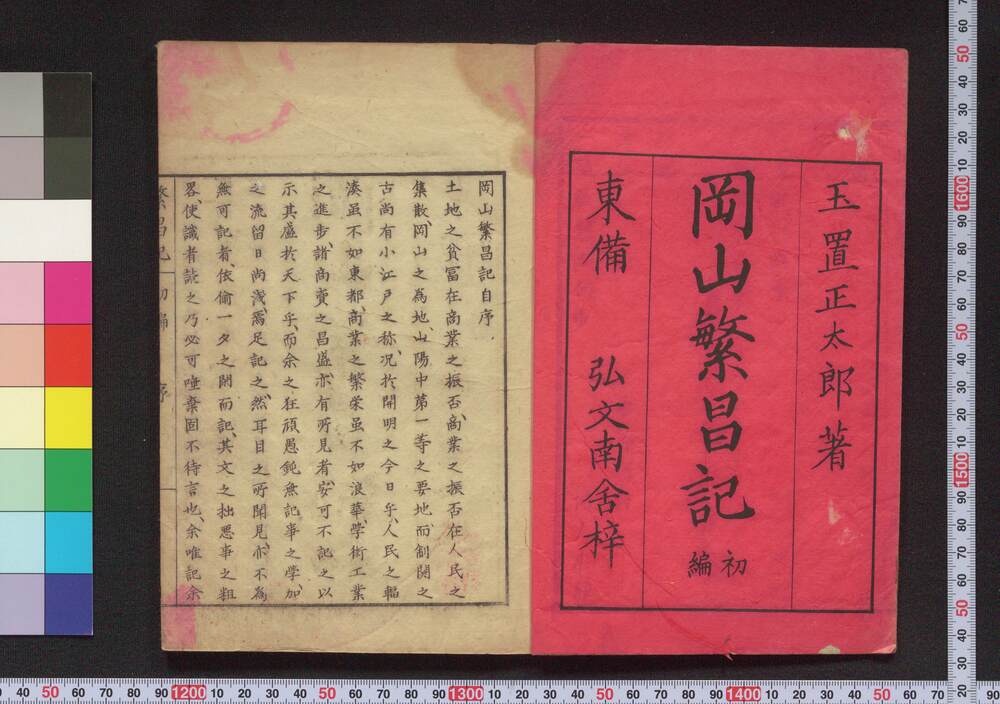 玉置正太郎著
岡山繁昌記
初編
東備　弘文南舍梓
岡山繁昌記自序
土地之貧冨在商業之振否、商業之振否在人民之
集散、岡山之為地、山陽中第一等之要地、而創開之
古尚有小江戸之称、况於開明之今日乎、人民之輻
湊虽不如東都、商業之繁栄虽不如浪華、学術工業
之進步、諸商賣之昌盛、亦有所見者、安可不記之以
示其盛於天下乎、而余之狂頑愚鈍無記事之学、加
之流留日尚浅、焉足記之、然耳目之所聞見、亦不為
無可記者、依偷一夕之閑而記、其文之拙悪事之粗
畧、使識者読之乃必可唾棄固不待言也、余唯記余
繁昌記
初編
序